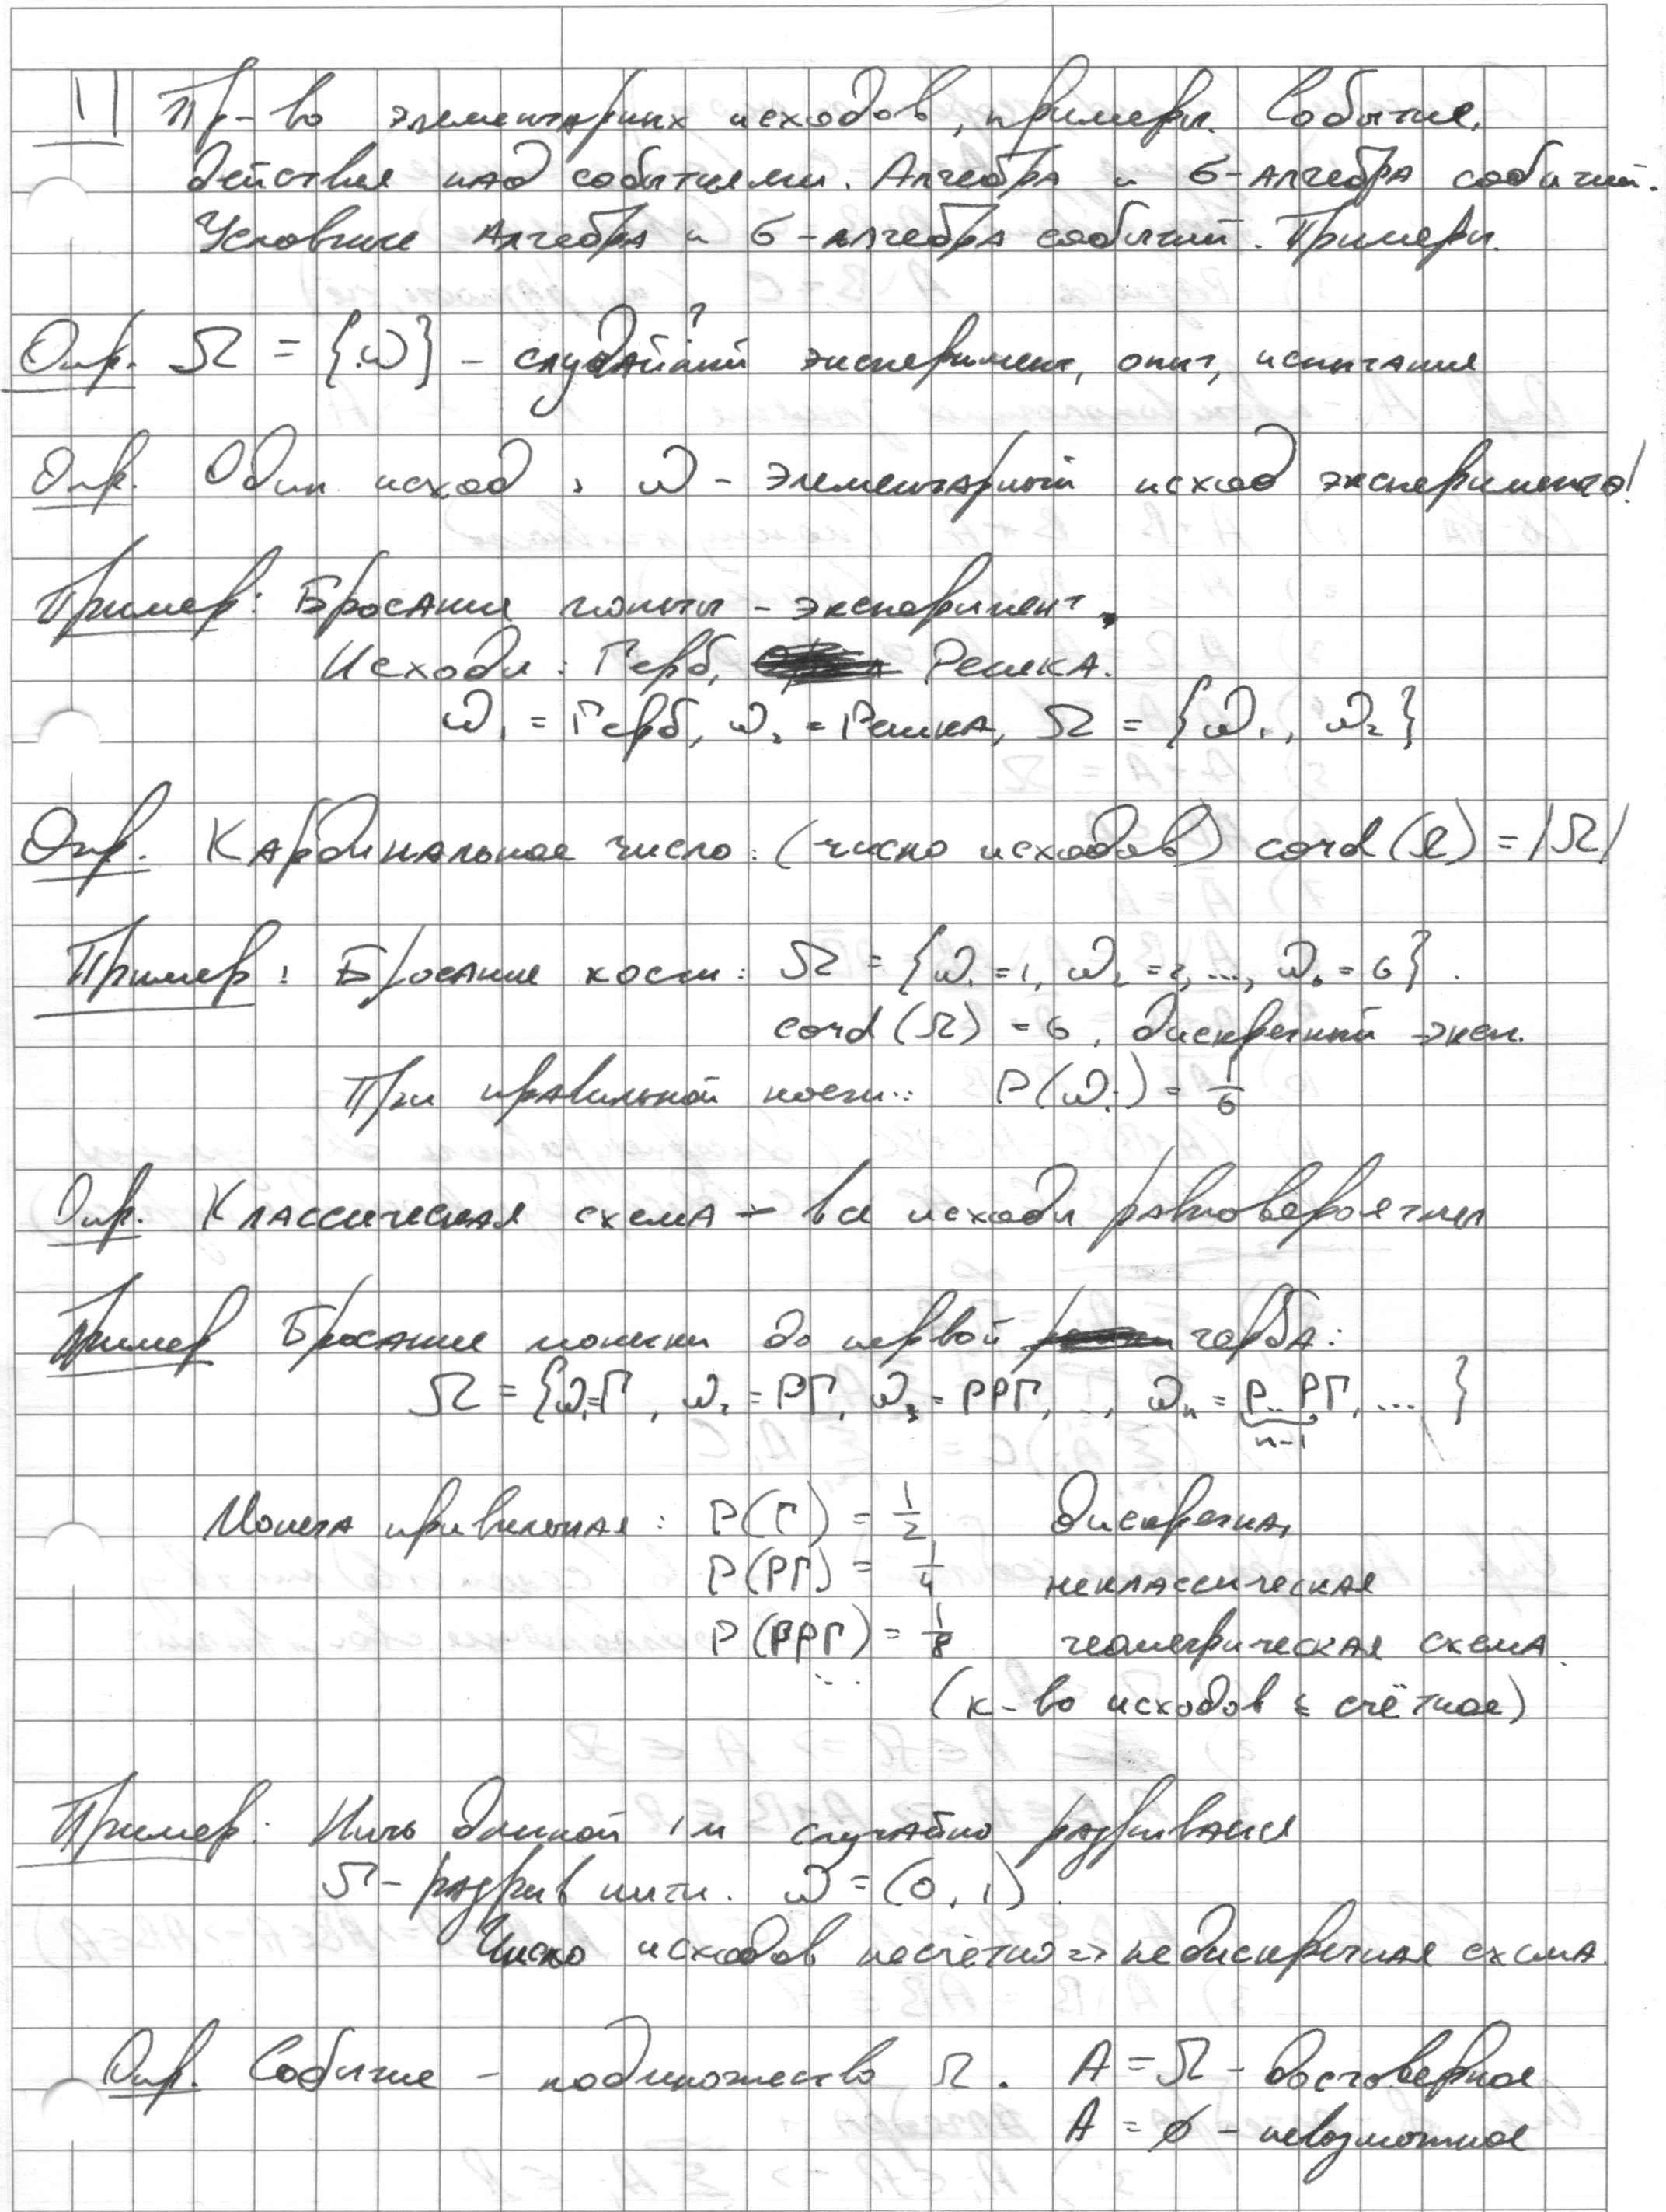 1) Пр-во элементарных исходов, примеры. События.
Действия над событиями. Алгебра и σ-алгебра событий.
Условные алгебра и σ-алгебра событий. Примеры.
Опр. Ω = {ω} - случайный эксперимент, опыт, испытание
Опр. Один исход, ω - элементарный исход эксперимента!
Пример: Бросание монеты - эксперимент.
Исходы: Герб, Решка.
ω₁ = Герб, ω₂ = Решка, Ω = {ω₁, ω₂}
Опр. Кардинальное число: (число исходов) cord(Ω) = |Ω|
Пример: Бросание кости: Ω = {ω₁=1, ω₂=2, ..., ω₆=6}.
cord(Ω) = 6, дискретный эксп.
При правильной кости: P(ωᵢ) = 1/6
Опр. Классическая схема - все исходы равновероятны
Пример Бросание монетки до первой герба:
Ω = {ω₁=Г, ω₂=РГ, ω₃=РРГ, .., ωₙ=Р..РГ, ... }
n-1
Монета правильная: P(Г) = 1/2 дискретная,
P(РГ) = 1/4 неклассическая
P(РРГ) = 1/8 геометрическая схема.
... (к-во исходов ≤ счётное)
Пример: Нить длиной 1м случайно разрывания
Ω - разрыв нити. ω = (0, 1).
Число исходов несчётно => недискретная схема.
Опр. Событие - подмножество Ω. A = Ω - достоверное
A = ∅ - невозможное